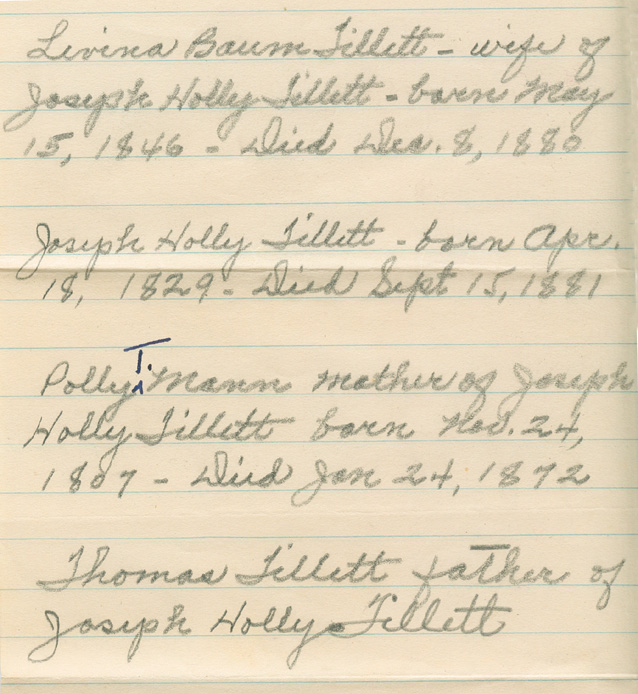 Levina Baum Tillett - wife of
Joseph Holly Tillett - born May
15, 1846 - Died Dec. 8, 1880
Joseph Holly Tillett - born Apr.
18, 1829 - Died Sept 15, 1881
Polly T. Mann mother of Joseph
Holly Tillett born Nov. 24,
1807 - Died Jan 24, 1872
Thomas Tillett father of
Joseph Holly Tillett